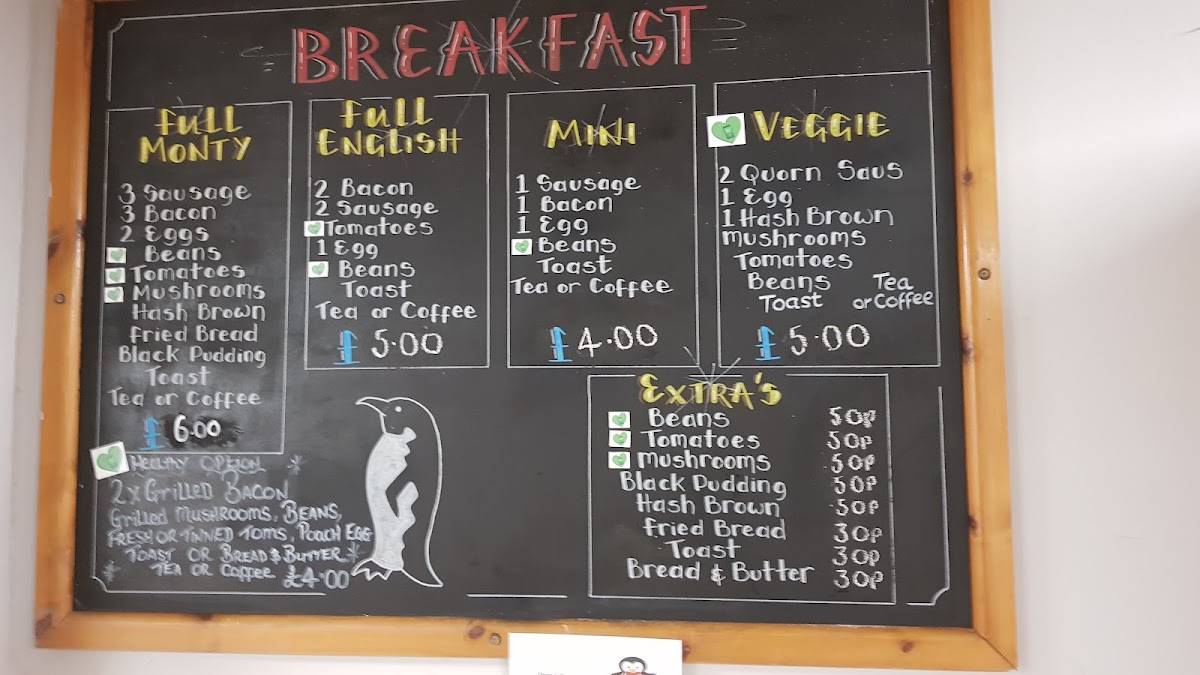 BREAKFAST
FULL
MONTY
3 Sausage
3 Bacon
2 Eggs
Beans
Tomatoes
Mushrooms
Hash Brown
Fried Bread
Black Pudding
Toast
Tea or Coffee
£ 6.00
FULL
ENGLISH
2 Bacon
2 Sausage
Tomatoes
1 Egg
Beans
Toast
Tea or Coffee
£ 5.00
MINI
1 Sausage
1 Bacon
1 Egg
Beans
Toast
Tea or Coffee
£ 4.00
VEGGIE
2 Quorn Saus
1 Egg
1 Hash Brown
Mushrooms
Tomatoes
Beans
Toast
Tea
or Coffee
£ 5.00
HEALTHY OPTION
2x GRILLED BACON
GRILLED MUSHROOMS, BEANS,
FRESH OR TINNED TOMS, POACH EGG
TOAST OR BREAD & BUTTER
TEA OR COFFEE £4.00
EXTRA'S
Beans 50p
Tomatoes 50p
Mushrooms 50p
Black Pudding 50p
Hash Brown 50p
Fried Bread 30p
Toast 30p
Bread & Butter 30p